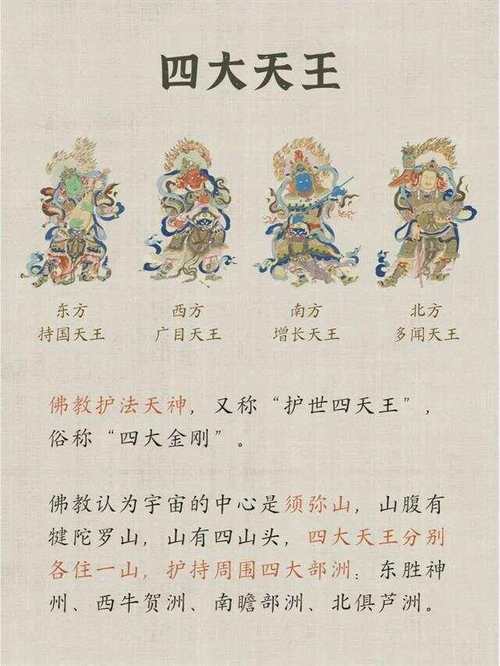 四大天王
东方 西方 南方 北方
持国天王 广目天王 增长天王 多闻天王
佛教护法天神，又称“护世四天王”，
俗称“四大金刚”。
佛教认为宇宙的中心是须弥山，山腹有
犍陀罗山，山有四山头，四大天王分别
各住一山，护持周围四大部洲：东胜神
州、西牛贺洲、南瞻部洲、北俱芦洲。